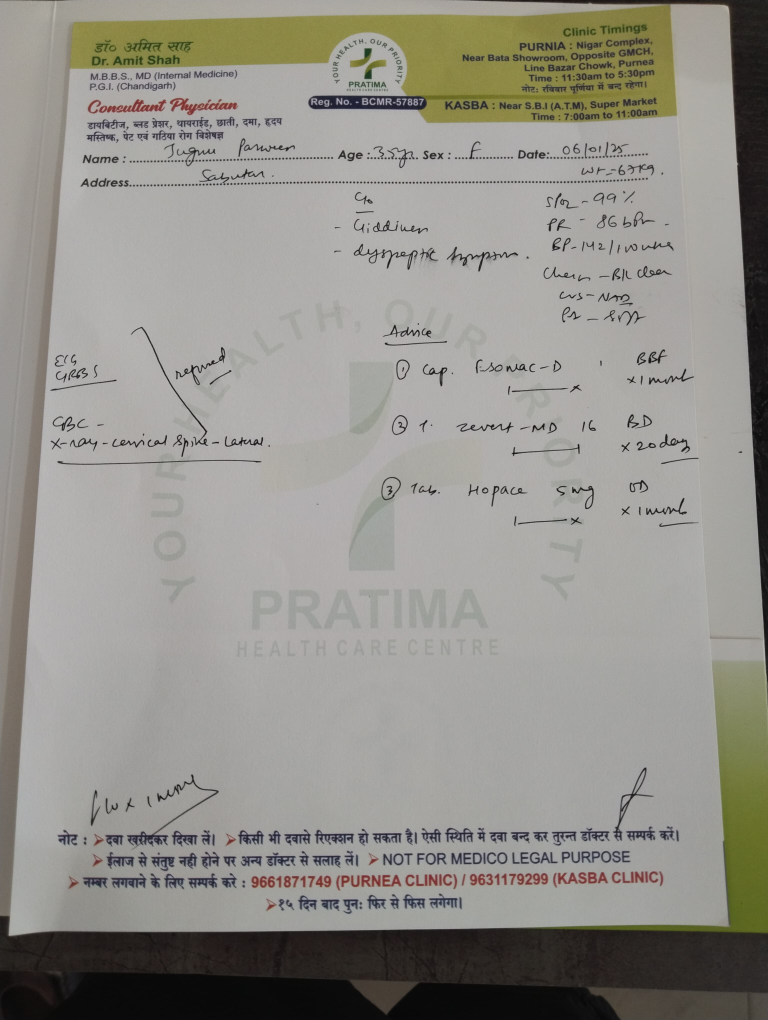 डॉ० अमित साह
Dr. Amit Shah
M.B.B.S., MD (Internal Medicine)
P.G.I. (Chandigarh)
Consultant Physician
डायबिटीज, ब्लड प्रेशर, थायराईड, छाती, दमा, हृदय
मस्तिष्क, पेट एवं गठिया रोग बिशेषज्ञ
YOUR HEALTH, OUR PRIORITY
PRATIMA
HEALTH CARE CENTRE
Reg. No. - BCMR-57887
Clinic Timings
PURNIA : Nigar Complex,
Near Bata Showroom, Opposite GMCH,
Line Bazar Chowk, Purnea
Time : 11:30am to 5:30pm
नोट: रविवार पूर्णिया में बन्द रहेगा।
KASBA : Near S.B.I (A.T.M), Super Market
Time : 7:00am to 11:00am
Name : Parween Age : 35yr Sex : F Date: 06/01/25
Address Sabutar. Wt - 67kg.
C/o
- Giddiness
- dyspeptic symptom.
SPO2 - 99%
PR - 86 bpm
BP - 142/100
Chest - B/L clear
CVS - NAD
ECG
GRBS
CBC -
X-ray - cervical spine - Lateral.
refused
Advice
① Cap. Esomac-D BBF
x 1 month
② T. Zevert-MD 16 BD
x 20 days
③ Tab. Hopace 5mg OD
x 1 month
YOUR HEALTH, OUR PRIORITY
PRATIMA
HEALTH CARE CENTRE
f/u x 1 month
नोट : ➤दवा खरीदकर दिखा लें। ➤किसी भी दवासे रिएक्शन हो सकता है। ऐसी स्थिति में दवा बन्द कर तुरन्त डॉक्टर से सम्पर्क करें।
➤ईलाज से संतुष्ट नही होने पर अन्य डॉक्टर से सलाह लें। ➤NOT FOR MEDICO LEGAL PURPOSE
➤नम्बर लगवाने के लिए सम्पर्क करे : 9661871749 (PURNEA CLINIC) / 9631179299 (KASBA CLINIC)
➤१५ दिन बाद पुनः फिर से फिस लगेगा।